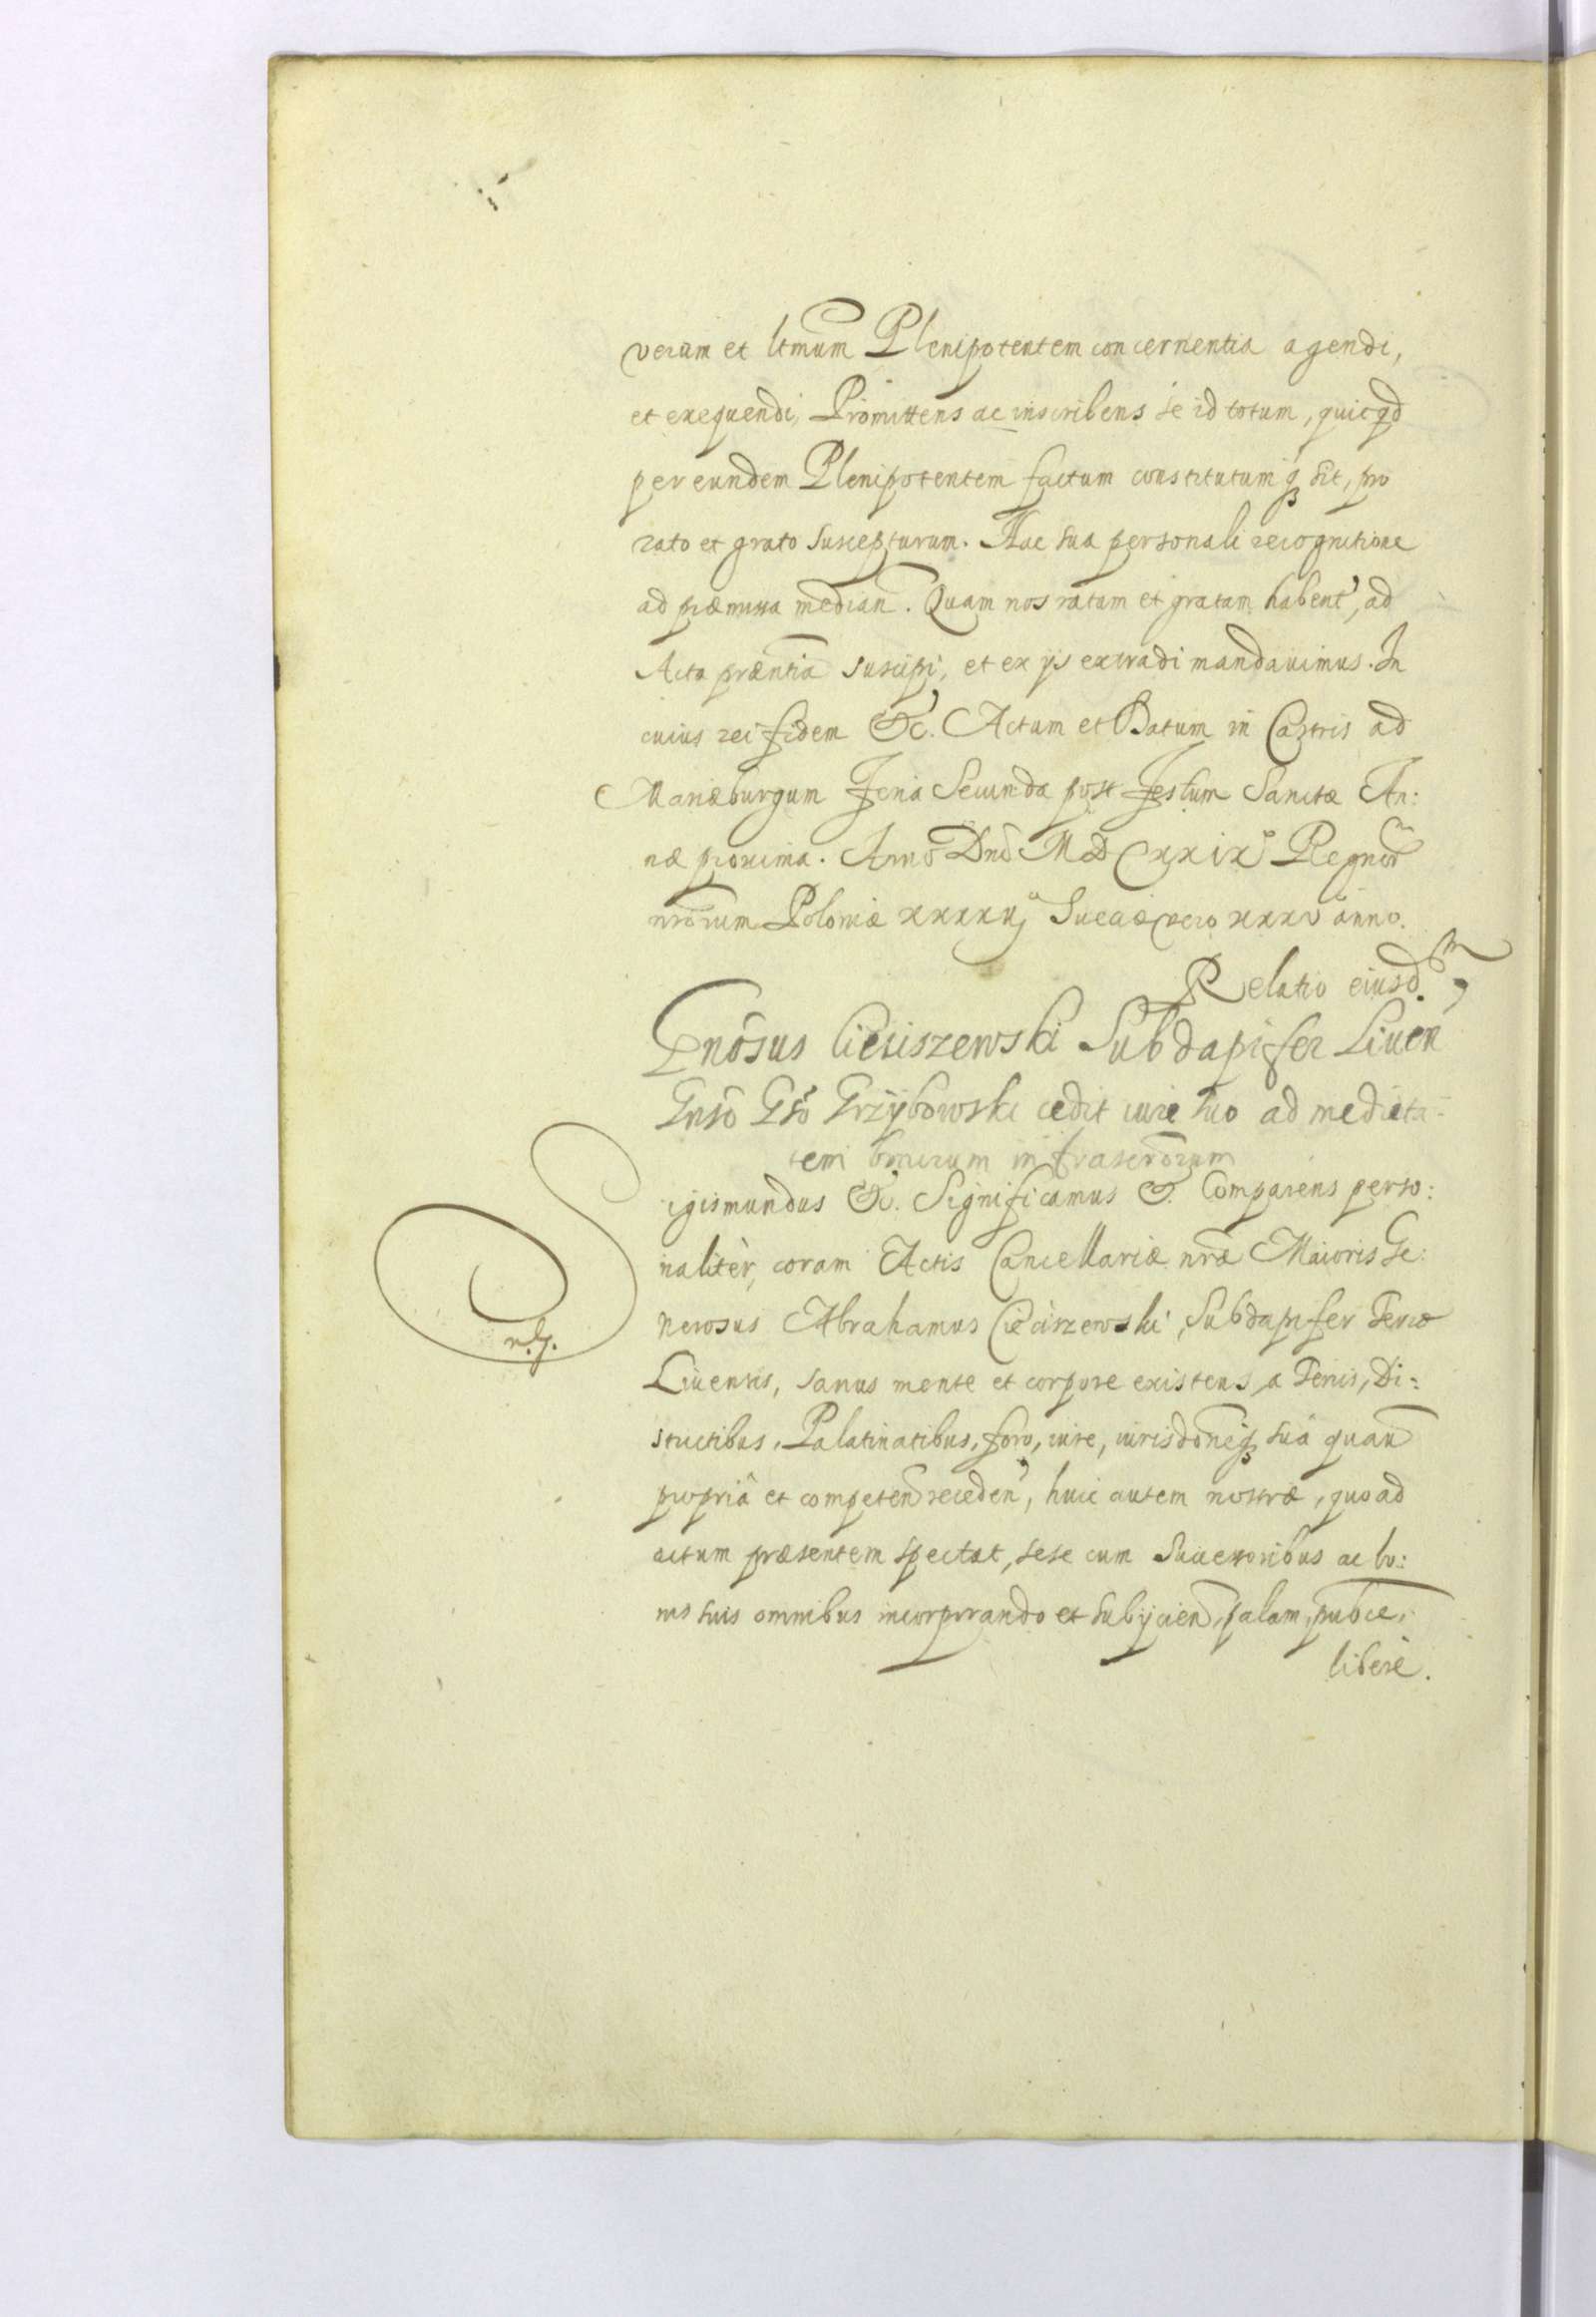 verum et ltmum Plenipotentem concernentia agendi,
et exequendi, Promittens ac inscribens se id totum, quicqd
per eundem Plenipotentem factum constitutumq sit, pro
rato et grato suscepturum. Hac sua personali recognitione
ad præmissa median. Quam nos ratam et gratam habent, ad
Acta præntia suscipi, et ex ijs extradi mandauimus. In
cuius rei fidem &c. Actum et Datum in Castris ad
Mariæburgum Feria Secunda post Festum Sanctæ An:
næ proxima. Anno Dni MDCXXIX Regnor
nrorum Poloniæ xxxxij Sueciæ vero xxxv anno.
Relatio eiusd.
Gnosus Cieciszewski Subdapifer Liuen
Gnso Gso Grzybowski cedit iure suo ad medieta-
tem bonorum infrascrorum
Sigismundus &c. Significamus &. Comparens perso:
naliter, coram Actis Cancellariæ nræ Maioris Ge:
nerosus Abrahamus Cieciszewski, Subdapifer Terræ
Liuensis, sanus mente et corpore existens, a Terris, Di:
strictibus, Palatinatibus, foro, iure, iurisdoneq sua quam
propriâ et competen receden, huic autem nostræ, quo ad
actum præsentem spectat, sese cum Successoribus ac bo:
nis suis omnibus incorporando et subijcien, palam, pubce,
libere.